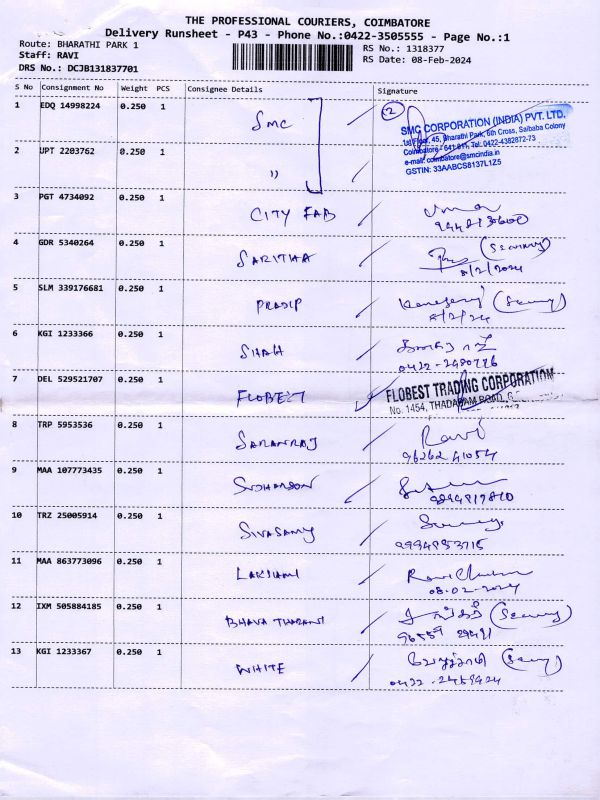 THE PROFESSIONAL COURIERS, COIMBATORE
Delivery Runsheet - P43 - Phone No.:0422-3505555 - Page No.:1
Route: BHARATHI PARK 1
RS No.: 1318377
Staff: RAVI
RS Date: 08-Feb-2024
DRS No.: DCJB131837701
S No Consignment No Weight PCS Consignee Details Signature
1 EDQ 14998224 0.250 1 SMC
2
SMC CORPORATION (INDIA) PVT. LTD.
1st Floor, 45, Bharathi Park, 6th Cross, Saibaba Colony
Coimbatore - 641 011, Tel: 0422-4382872-73
e-mail: coimbatore@smcindia.in
GSTIN: 33AABCS8137L1Z5
2 UPT 2203762 0.250 1 "
3 PGT 4734092 0.250 1 CITY FAB
4 GDR 5340264 0.250 1 SARITHA
8/2/2024
5 SLM 339176681 0.250 1 PRADIP
8/2/24
6 KGI 1233366 0.250 1 SHAH
7 DEL 529521707 0.250 1 FLOBEST
FLOBEST TRADING CORPORATION
No. 1454, THADAGAM ROAD,
8 TRP 5953536 0.250 1 SARANRAJ Ravi
96262 41054
9 MAA 107773435 0.250 1 SUDHARSON
10 TRZ 25005914 0.250 1 SIVASAMY
11 MAA 863773096 0.250 1 LAKSHMI
08-02-2024
12 IXM 505884185 0.250 1 BHAVA THARANI
13 KGI 1233367 0.250 1 WHITE